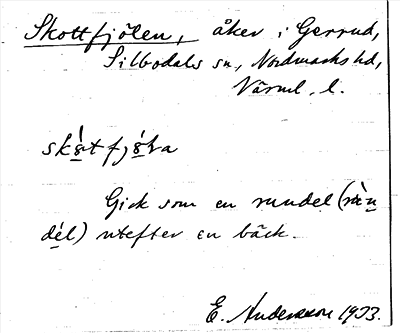 Skottfjölen, åker i Gerrud,
Silbodals sn, Nordmarks hd,
Värml. l.
Gick som en rundel
utefter en bäck.
E. Andersson 1933.